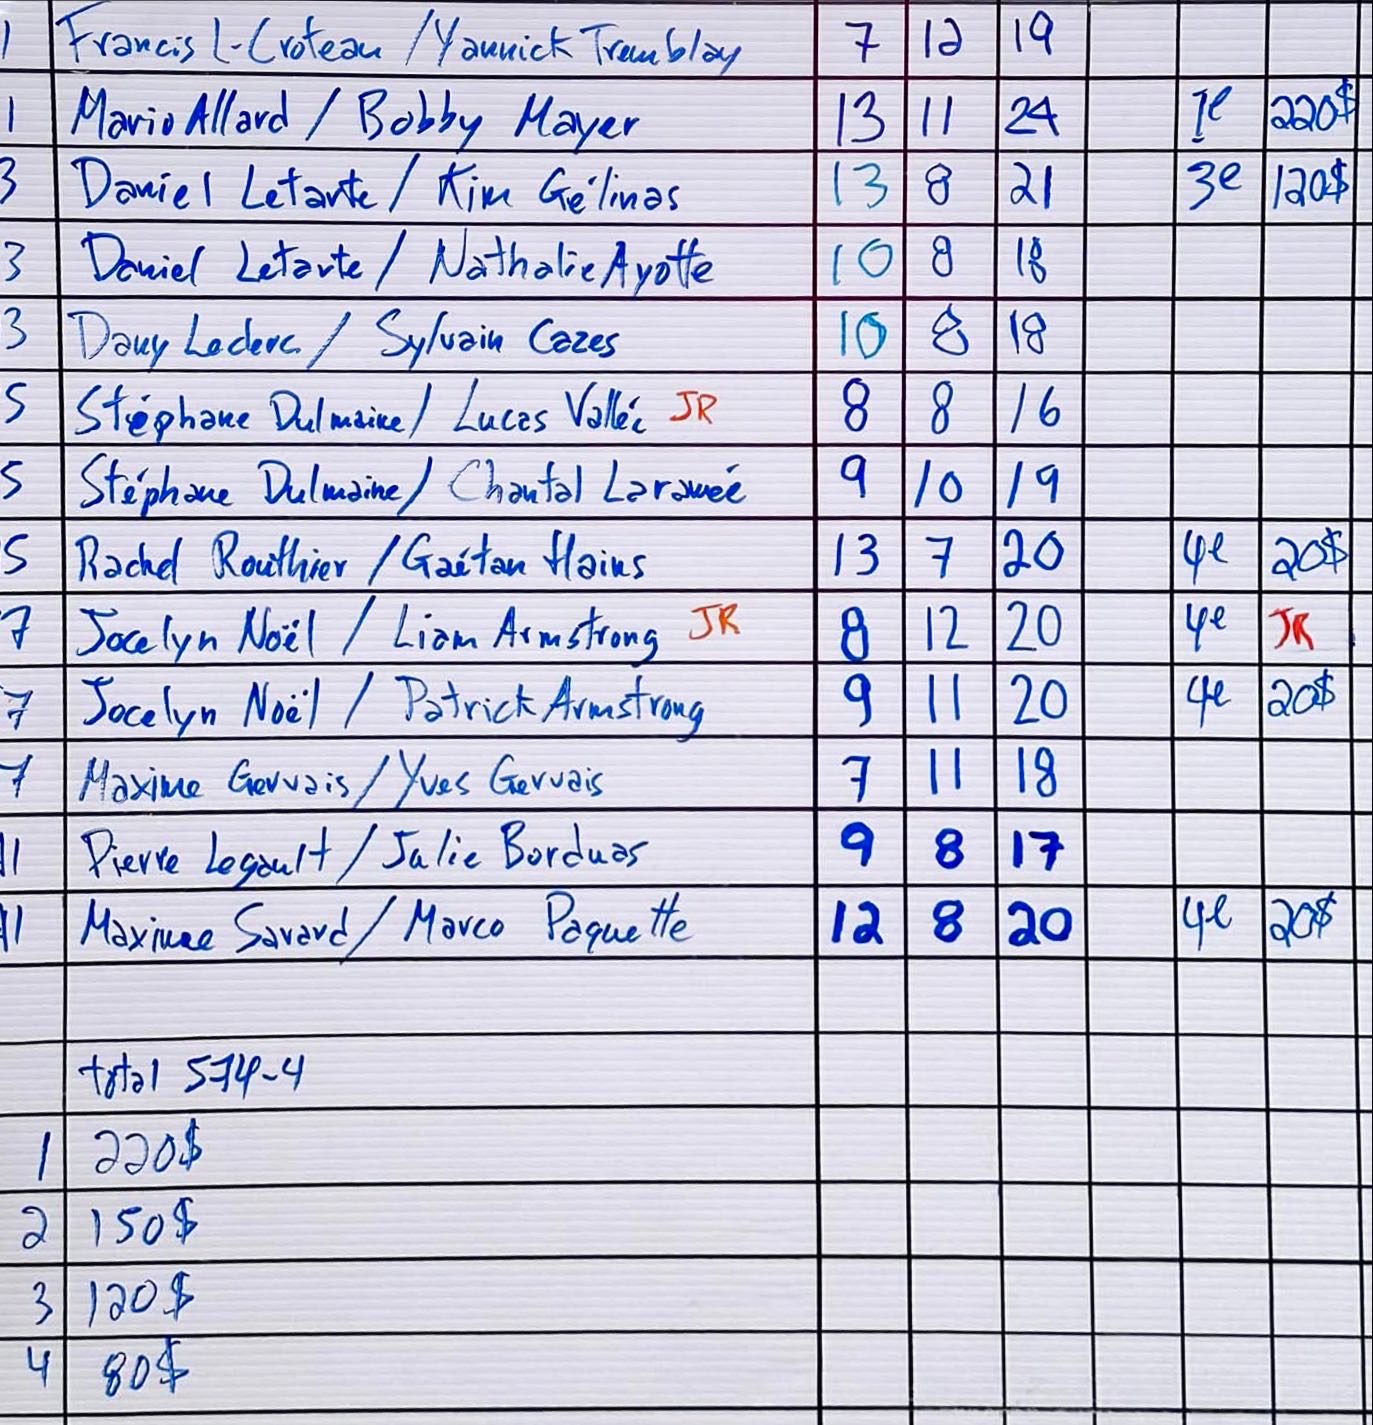 1 Francis L-Croteau / Yannick Tremblay 7 12 19
1 Mario Allard / Bobby Mayer 13 11 24 1e 220$
3 Daniel Letarte / Kim Gélinas 13 8 21 3e 120$
3 Daniel Letarte / Nathalie Ayotte 10 8 18
3 Dany Leclerc / Sylvain Cazes 10 8 18
5 Stéphane Dulmaine / Lucas Vallée JR 8 8 16
5 Stéphane Dulmaine / Chantal Laramée 9 10 19
5 Rachel Routhier / Gaétan Hains 13 7 20 4e 20$
7 Jocelyn Noël / Liam Armstrong JR 8 12 20 4e JR
7 Jocelyn Noël / Patrick Armstrong 9 11 20 4e 20$
7 Maxime Gervais / Yves Gervais 7 11 18
11 Pierre Legault / Julie Borduas 9 8 17
11 Maxime Savard / Marco Paquette 12 8 20 4e 20$
total 574-4
1 220$
2 150$
3 120$
4 80$